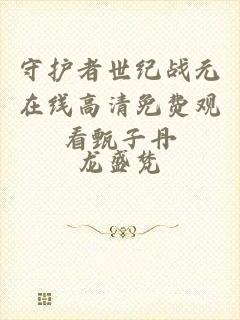 守护者世纪战元
在线高清免费观
看甄子丹
龙盛梵